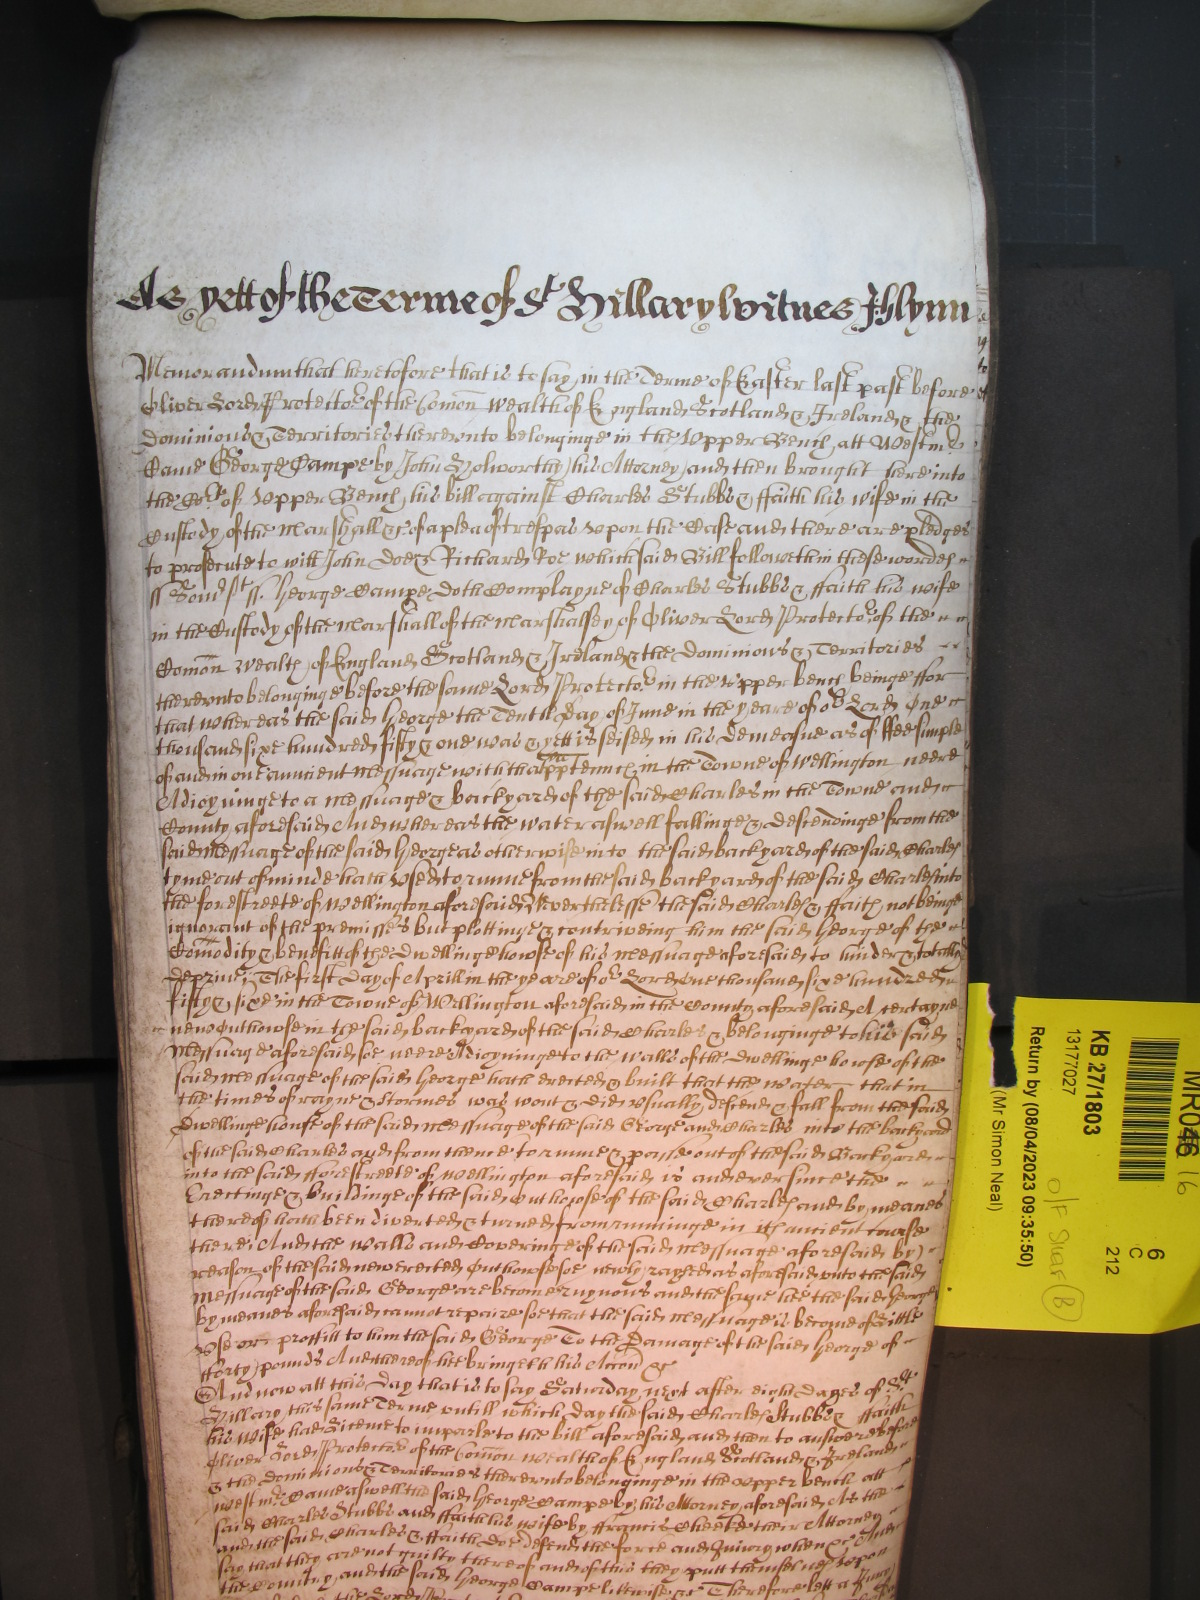 As yett of the Terme of St Hillary Witnes J hlynn
Memorandum that heretofore that is to say in the Terme of Easter last past before
Oliver Lord Protector of the Comon wealth of England Scotland & Ireland & the
dominions & Territories thereunto belonginge in the Upper Bench att Westmr
Came George Campe by John Holworthy his Attorney and then brought here into
the Cort of Upper Bench his bill against Charles Stubbs & ffaith his wife in the
Custody of the Marshall &c of a plea of trespas upon the Case and there are pledges
to prosecute to witt John Doe & Richard Roe which said Bill followeth in these wordes
ss Somrst ss. George Campe doth Complayne of Charles Stubbs & ffaith his wife
in the Custody of the Marshall of the Marshalsey of Oliver Lord Protector of the
Comon wealth of England Scotland & Ireland & the Dominions & Territories
thereunto belonginge before the same Lord Protector in the upper bench beinge ffor
that whereas the said George the Tenth Day of June in the yeare of or Lord One
thousand sixe hundred fifty & one was & yett is seised in his demeasne as of ffee simple
of and in one auncient messuage with thapptennces in the Towne of Wellington neere
Adioyninge to a messuage & backyard of the said Charles in the Towne and
County aforesaid And whereas the water aswell fallinge & descendinge from the
said Messuage of the said George as otherwise into the said backyard of the said Charles
tyme out of minde hath used to runne from the said backyard of the said Charles into
the forestreete of Wellington aforesaid Neverthelesse the said Charles & ffaith not beinge
ignorant of the premisses but plottinge & contriveing him the said George of the
Comodity & benefitt of the Dwellinge howse of his messuage aforesaid to hinder & totally
deprive, The first day of Aprill in the yeare of or Lord One thousand sixe hundred
fifty & sixe in the Towne of Wellington aforesaid in the County aforesaid A certayne
new Outhowse in the said backyard of the said Charles & belonginge to his said
Messuage aforesaid soe neere Adioyninge to the walls of the dwellinge howse of the
said messuage of the said George hath erected & built that the water that in
the times of rayne & stormes was wont & did usually descend & fall from the said
dwellinge house of the said messuage of the said George and Charles into the backyard
of the said Charles and from thence to runne & passe out of the said Backyard
into the said fforestreete of Wellington aforesaid is and ever since the
Erectinge & Buildinge of the said Outhowse of the said Charles and by meanes
thereof hath been diverted & turned from runninge in its ancient course
there. And the walls and Coveringe of the said messuage aforesaid by
reason of the said new erected Outhowse soe newly raysed as aforesaid unto the said
Messuage of the said George are become ruynous and the same hee the said George
by meanes aforesaid cannot repaire soe that the said messuage is become of little
use or proffitt to him the said George To the Damage of the said George of
fforty pounds And thereof hee bringeth his Accon &c
And now att this day that is to say Saturday next after eight dayes of St
Hillary this same Terme untill which day the said Charles Stubbs & ffaith
his wife had Licence to imparle to the bill aforesaid and then to answere before
Oliver Lord Protector of the Comon wealth of England Scotland & Ireland
& the Dominions & Territories thereunto belonginge in the upper bench att
westmr Came aswell the said George Campe by his Attorney aforesaid As the
said Charles Stubbs and ffaith his wife by ffrancis Cheeke their Attorney
and the said Charles & ffaith Doe defend the force and Iniury when &c And
say that they are not guilty thereof and of this they putt themselves upon
the Country, and the said George Campe likewise &c Therefore lett a Jury
KB 27/1803
13177027
Return by (08/04/2023 09:35:50)
(Mr Simon Neal)
6
C
212